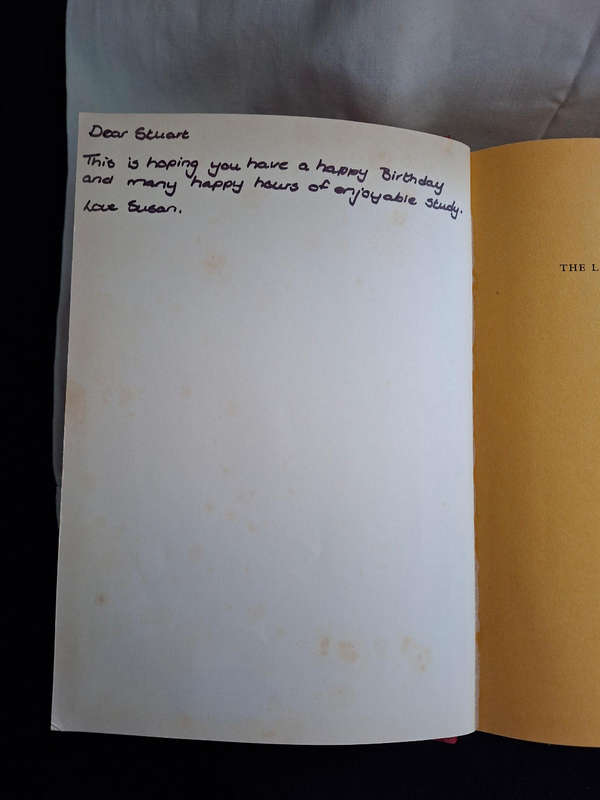 Dear Stuart
This is hoping you have a happy Birthday
and many happy hours of enjoyable study.
Love Susan.
THE L